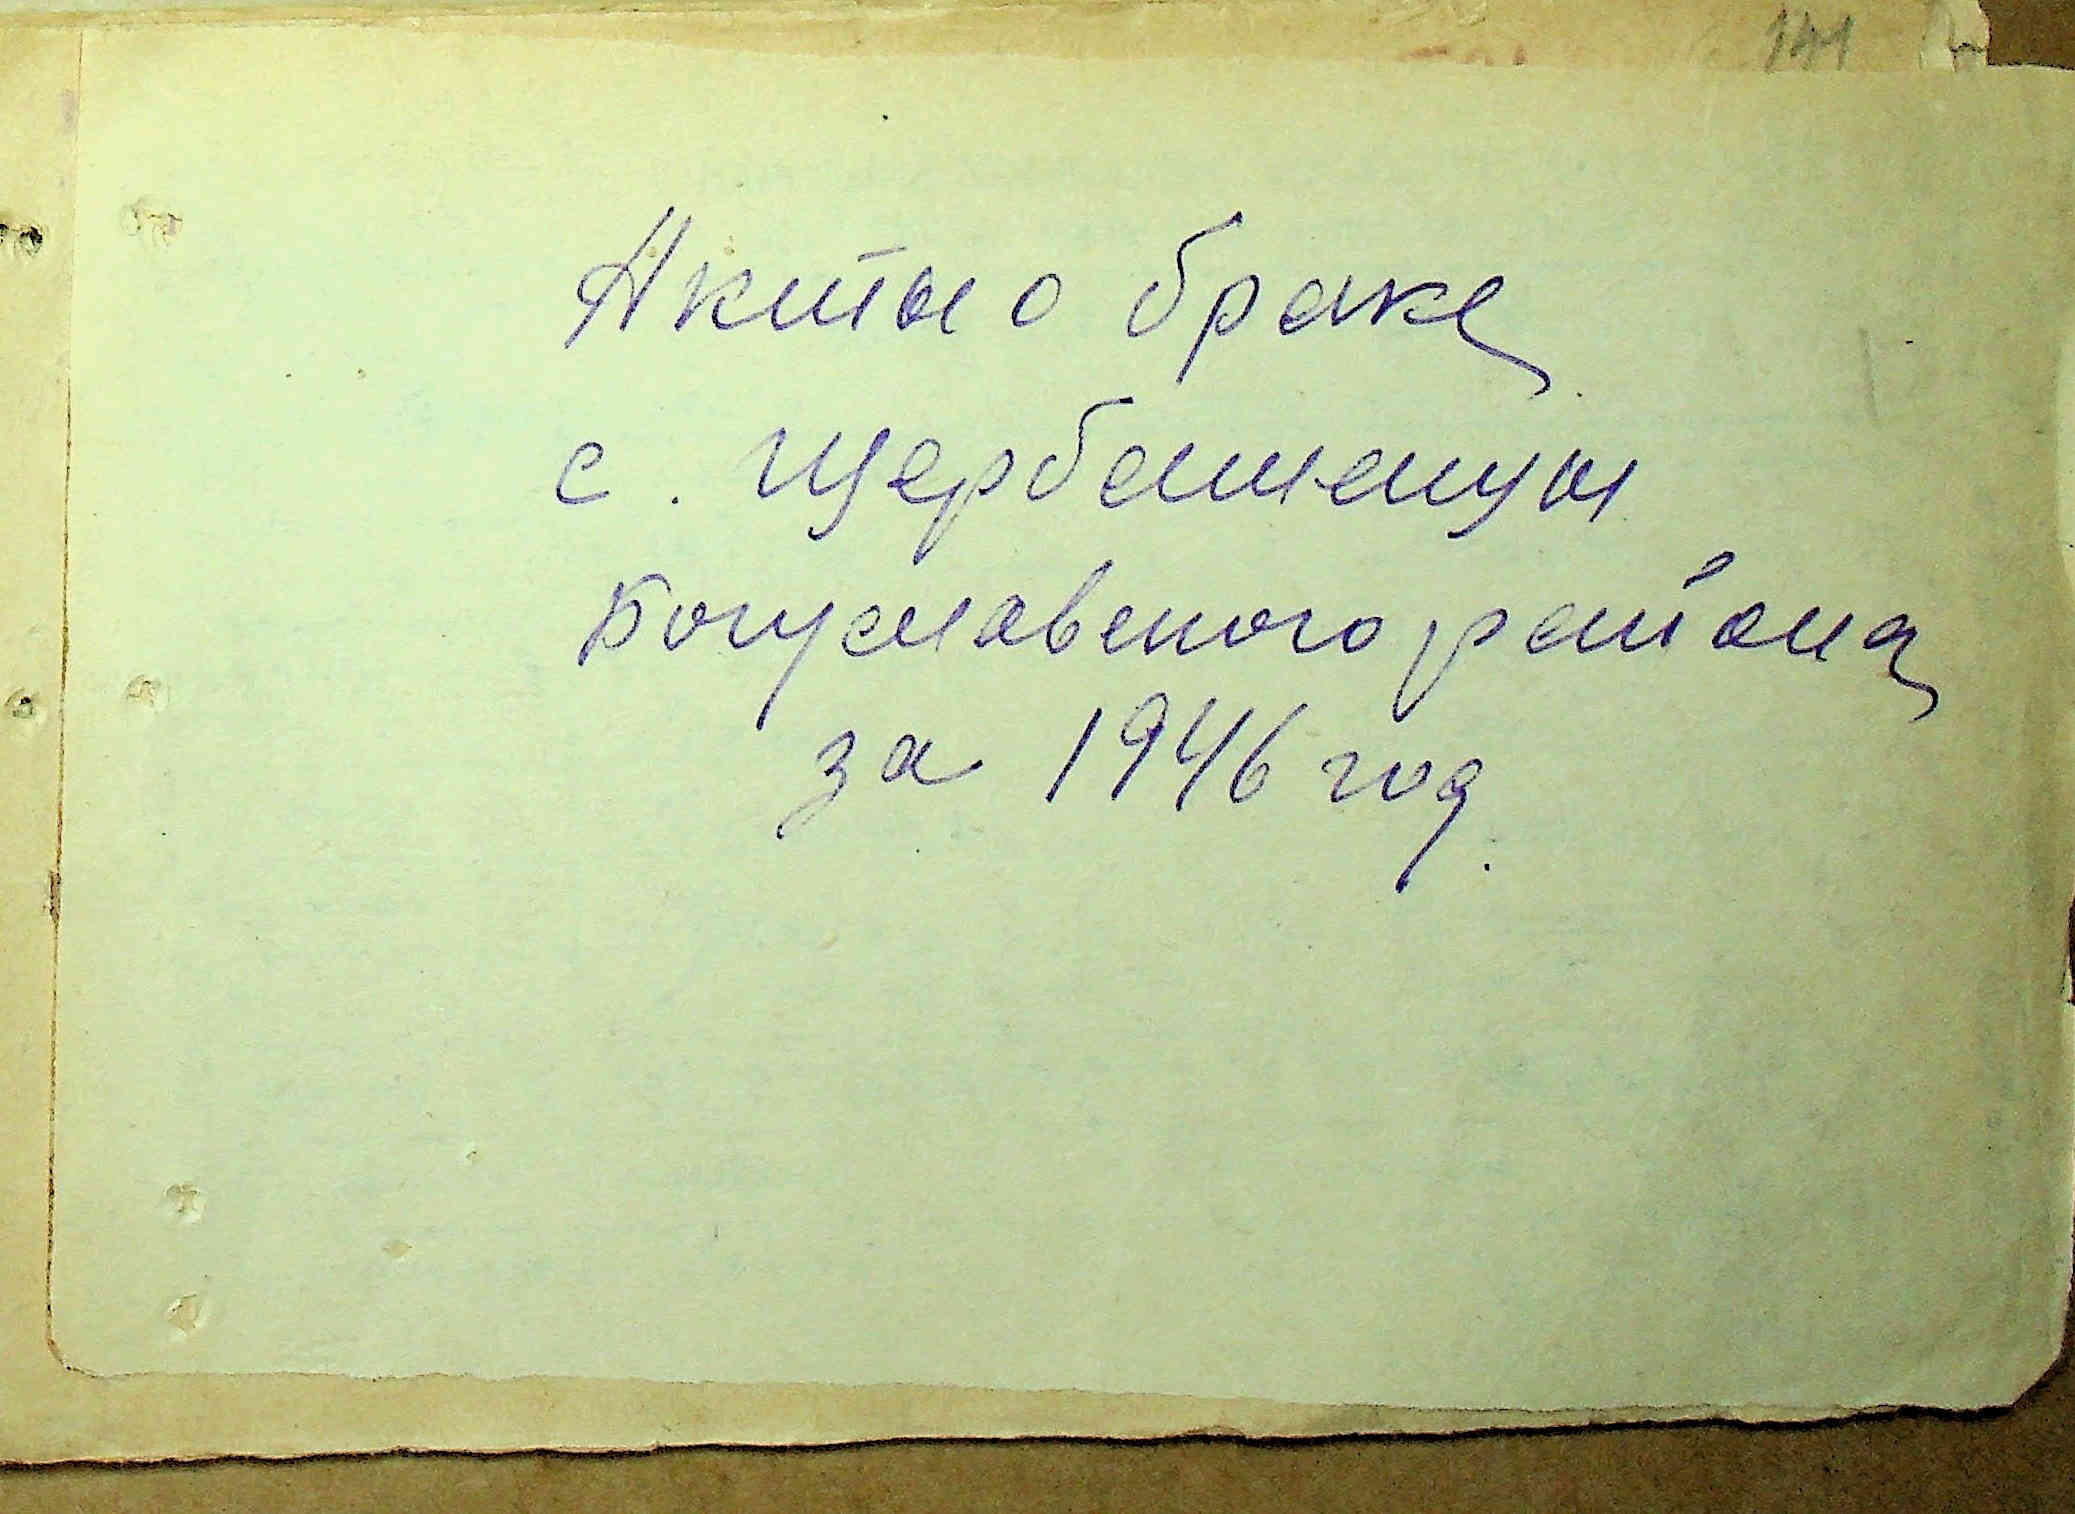 141
Акты о браке
с. Щербашенцы
Богуславского района
за 1946 год.